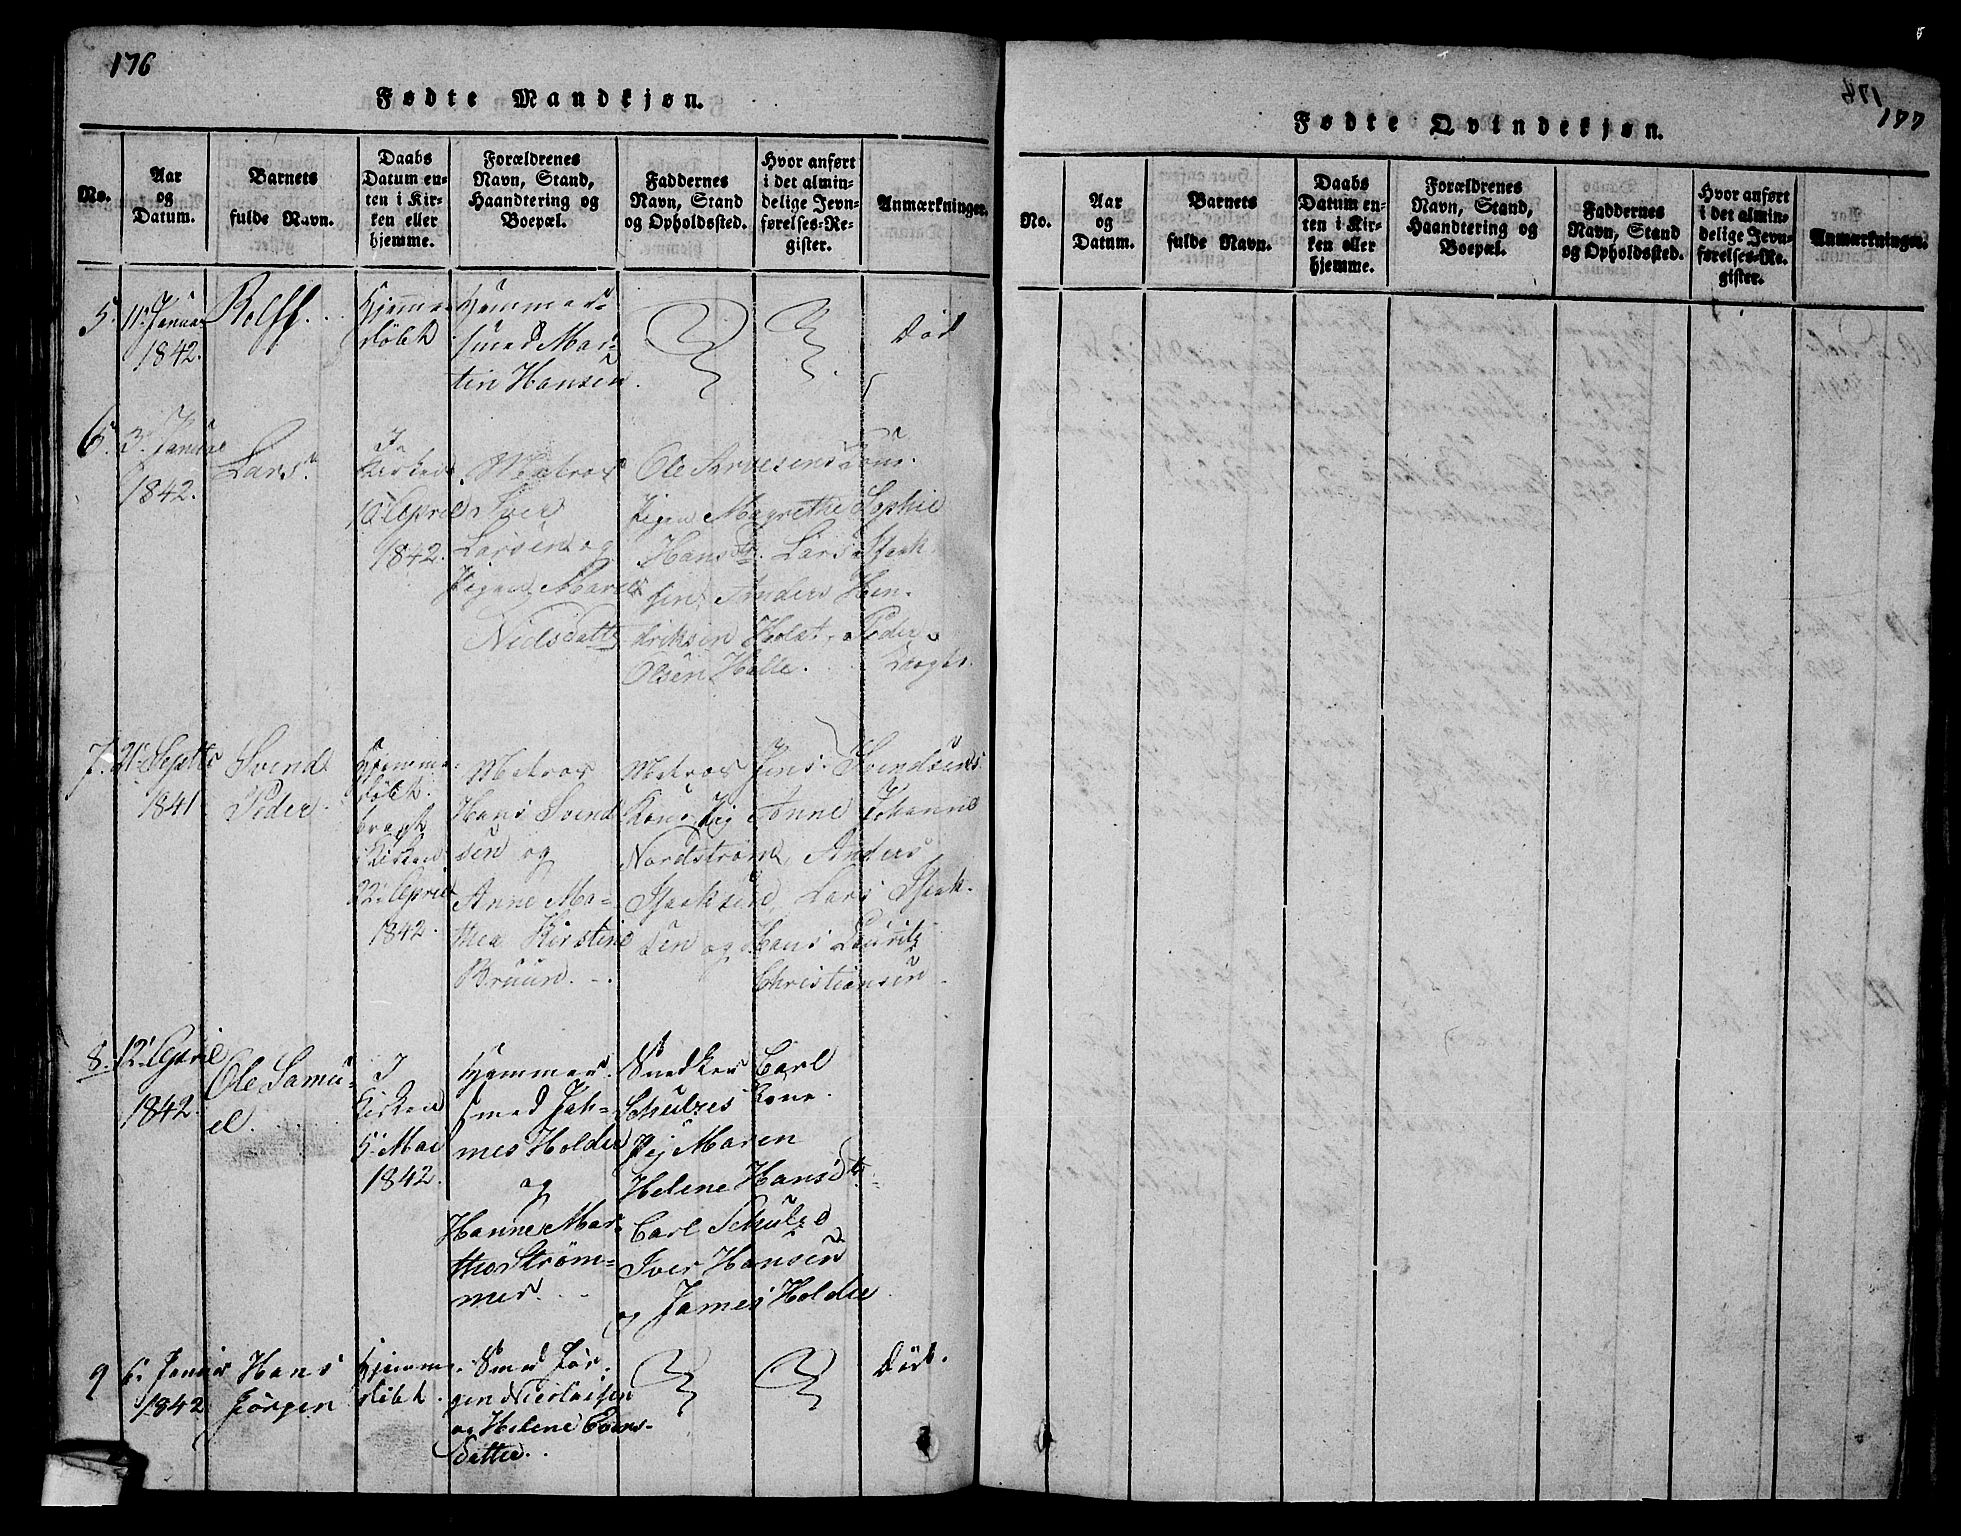 176
Fødte Mandkjøn.
No.
Aar
og
Datum.
Barnets
fulde Navn.
Daabs
Datum en-
ten i Kir-
ken eller
hjemme.
Forældrenes
Navn, Stand,
Haandtering og
Boepæl.
Faddernes
Navn, Stand
og Opholdssted.
Hvor anført
i det almin-
delige Jevn-
førelses-Re-
gister.
Anmærkninger.
5. 11 Januar
1842.
Rolff.
Hjemme
døbt
Hammer-
smed Mar-
tin Hansen.
Død
6. 3 Januar
1842.
Lars.
I
Kirken
10 April
1842.
Matros
Iver
Larsen og
Pigen Maren
Nielsdattr
Ole Arvesens Kone.
Pigen Magrethe Sophie
Hansdtr. Lars Isaak-
sen, Anders Hen-
driksen Holst, Peder
Olsen Halle.
7. 21 Septbr
1841
Svend
Peder.
Hjemme-
døbt.
bragt
i Kirken
22 April
1842.
Matros
Hans Svend
sen og
Anne Ma-
thea Kirstine
Bruun.
Matros Jens Svendsens
Kone, Pig Anne Johanne
Nordstrøm, Anders
Isaaksen, Lars Isaak-
sen og Hans Lauritz
Christiansen.
8. 12 April
1842.
Ole Samu-
el.
I
Kirken
5 Mai
1842.
Hammer-
smed Jah-
mes Holdie
og
Hanne Mar-
thea Strøm-
mer.
Snedker Carl
Schulzes Kone.
Pig Maren
Helene Hansdtr.
Carl Schulze
Iver Hansen
og James Holdie
9 6 Januar
1842
Hans
Jørgen
Hjemme
døbt.
Smed Jør-
gen Nicolaisen
og Helene Evens-
dattr.
Død.
177
Fødte Qvindekjøn.
No.
Aar
og
Datum.
Barnets
fulde Navn.
Daabs
Datum en-
ten i Kir-
ken eller
hjemme.
Forældrenes
Navn, Stand,
Haandtering og
Boepæl.
Faddernes
Navn, Stand
og Opholdssted.
Hvor anført
i det almin-
delige Jevn-
førelses-Re-
gister.
Anmærkninger.